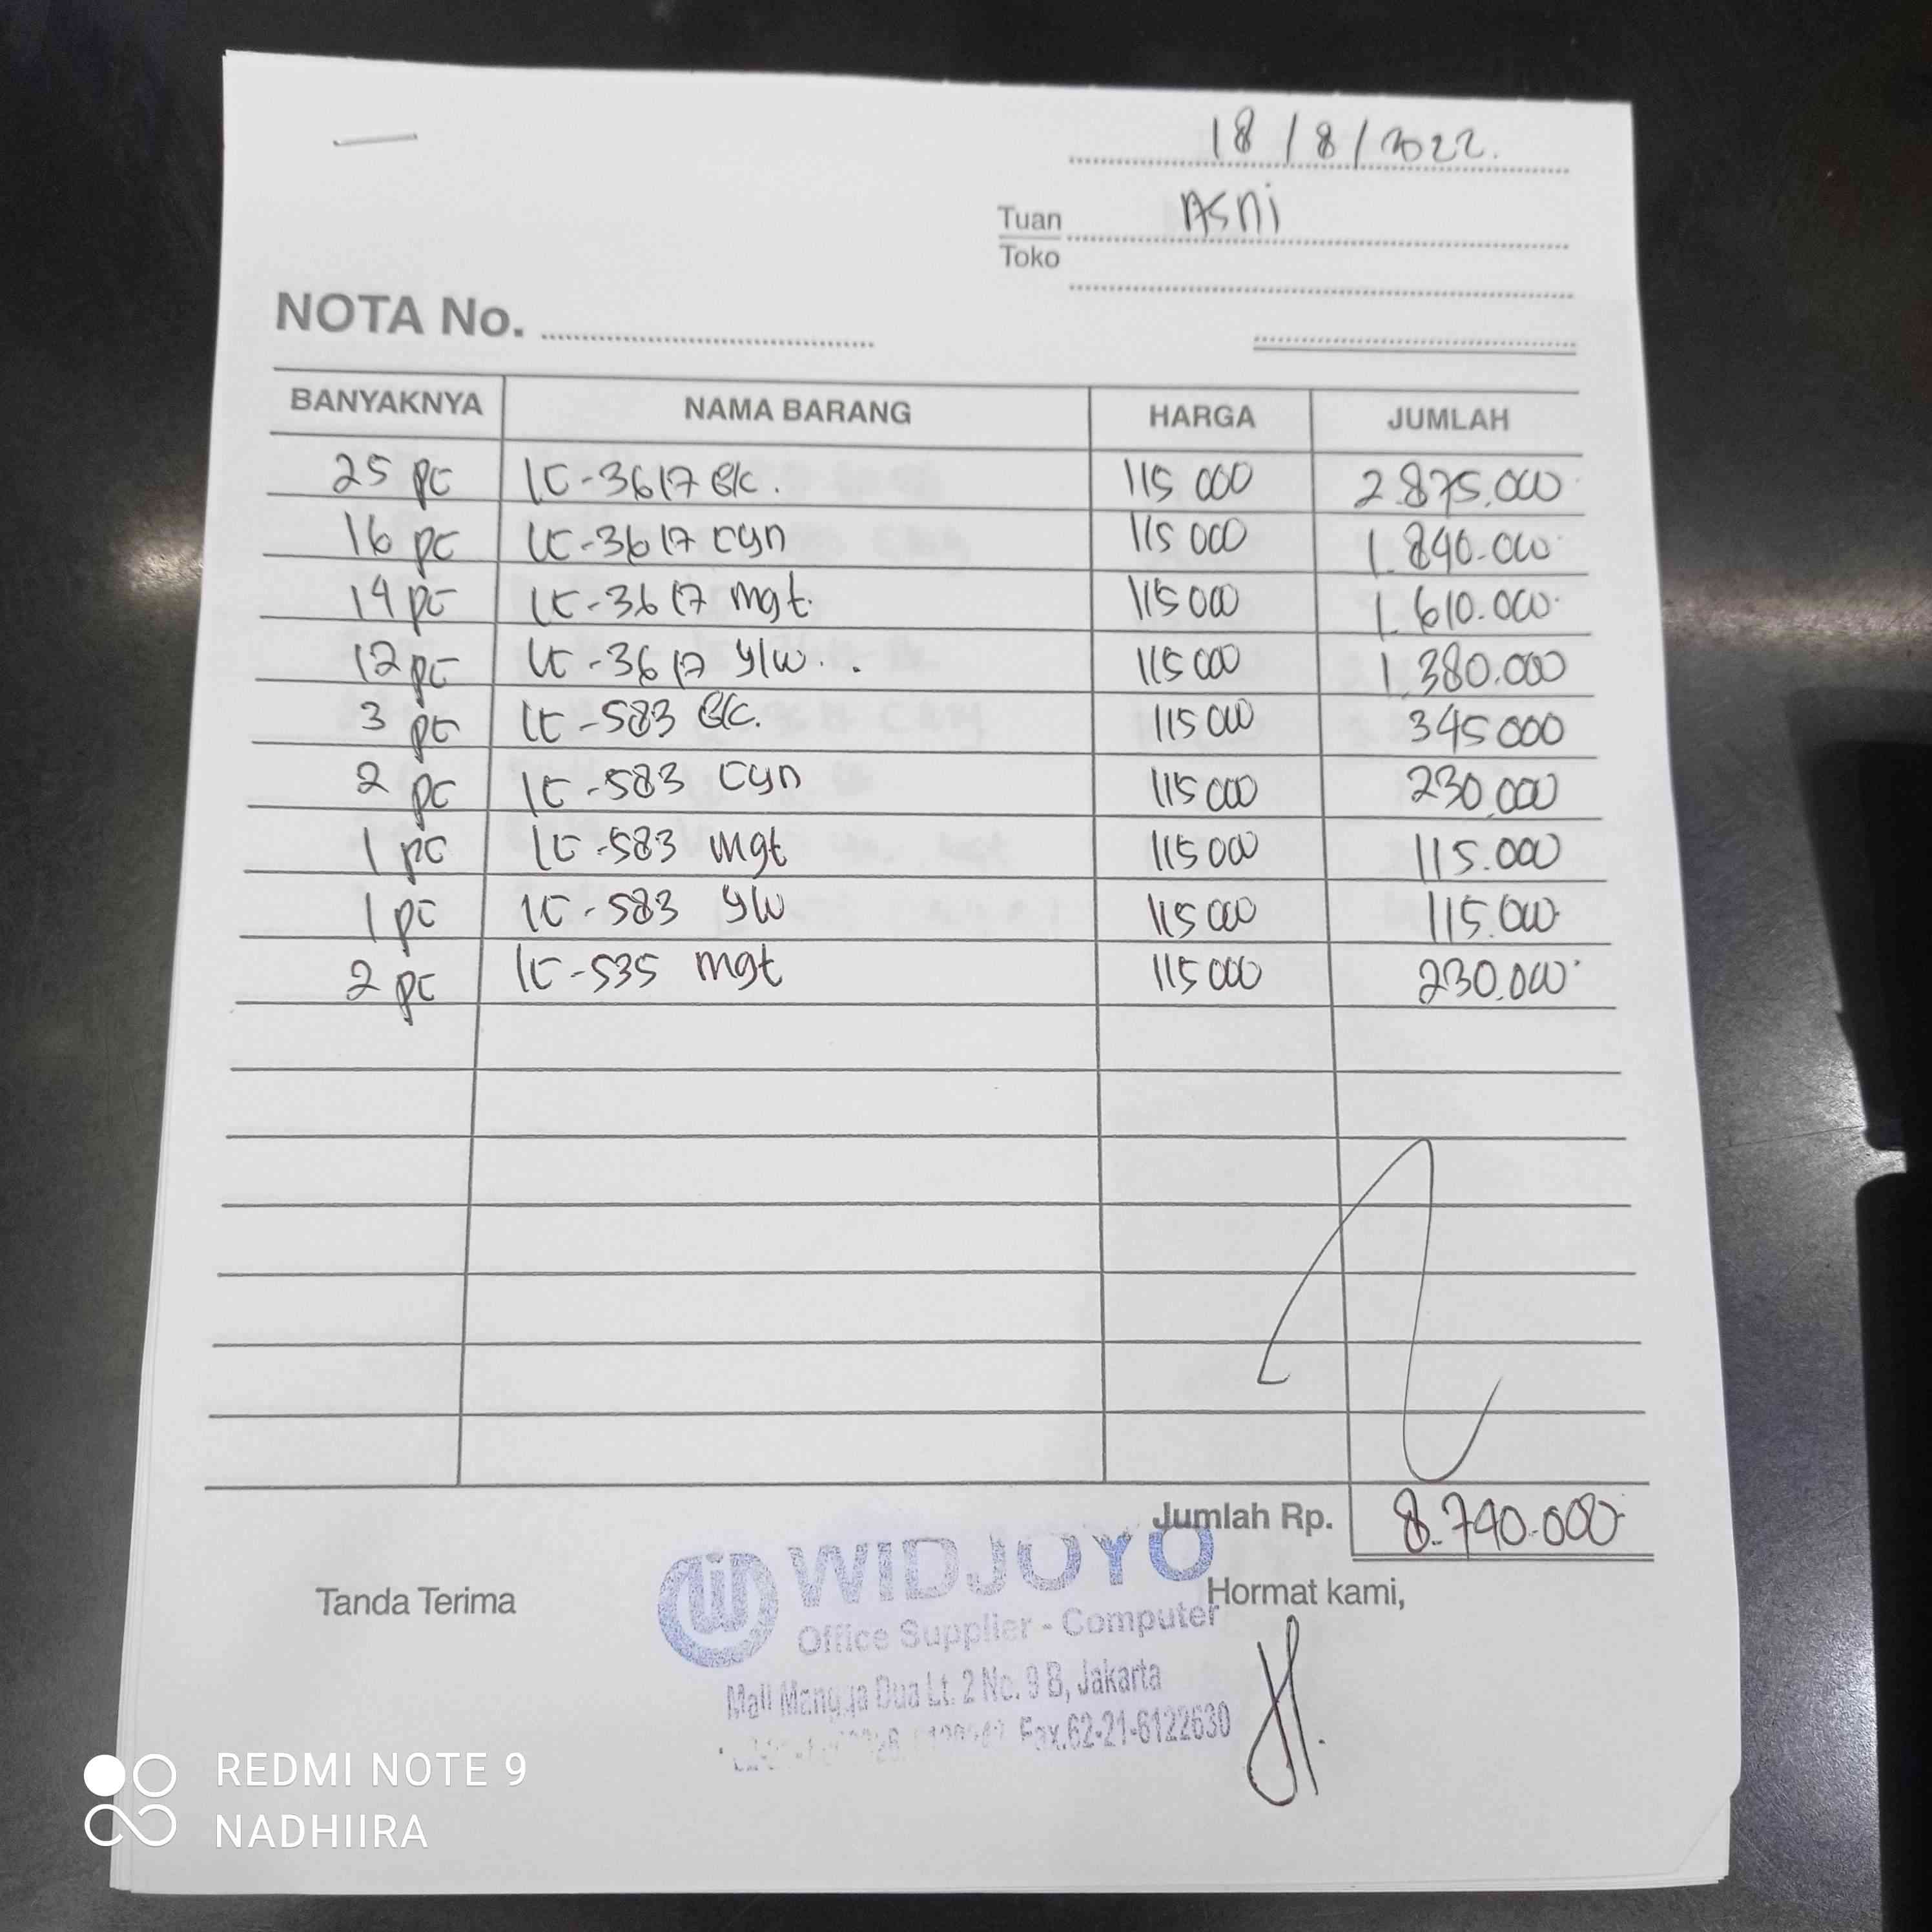 18/8/2022.
Tuan Asni
Toko
NOTA No.
BANYAKNYA NAMA BARANG HARGA JUMLAH
25 pc LC-3617 Blc. 115 000 2.875.000
16 pc LC-3617 Cyn 115 000 1.840.000
14 pc LC-3617 Mgt. 115 000 1.610.000
12 pc LC-3617 Ylw.. 115 000 1.380.000
3 pc LC-583 Blc. 115 000 345 000
2 pc LC-583 Cyn 115 000 230.000
1 pc LC-583 Mgt 115 000 115.000
1 pc LC-583 Ylw 115 000 115.000
2 pc LC-535 Mgt 115 000 230.000
Jumlah Rp. 8.740.000
Tanda Terima
Hormat kami,
WIDJOYO
Office Supplier - Computer
Mall Mangga Dua Lt. 2 No. 9 B, Jakarta
Fax.62-21-6122630
REDMI NOTE 9
NADHIIRA